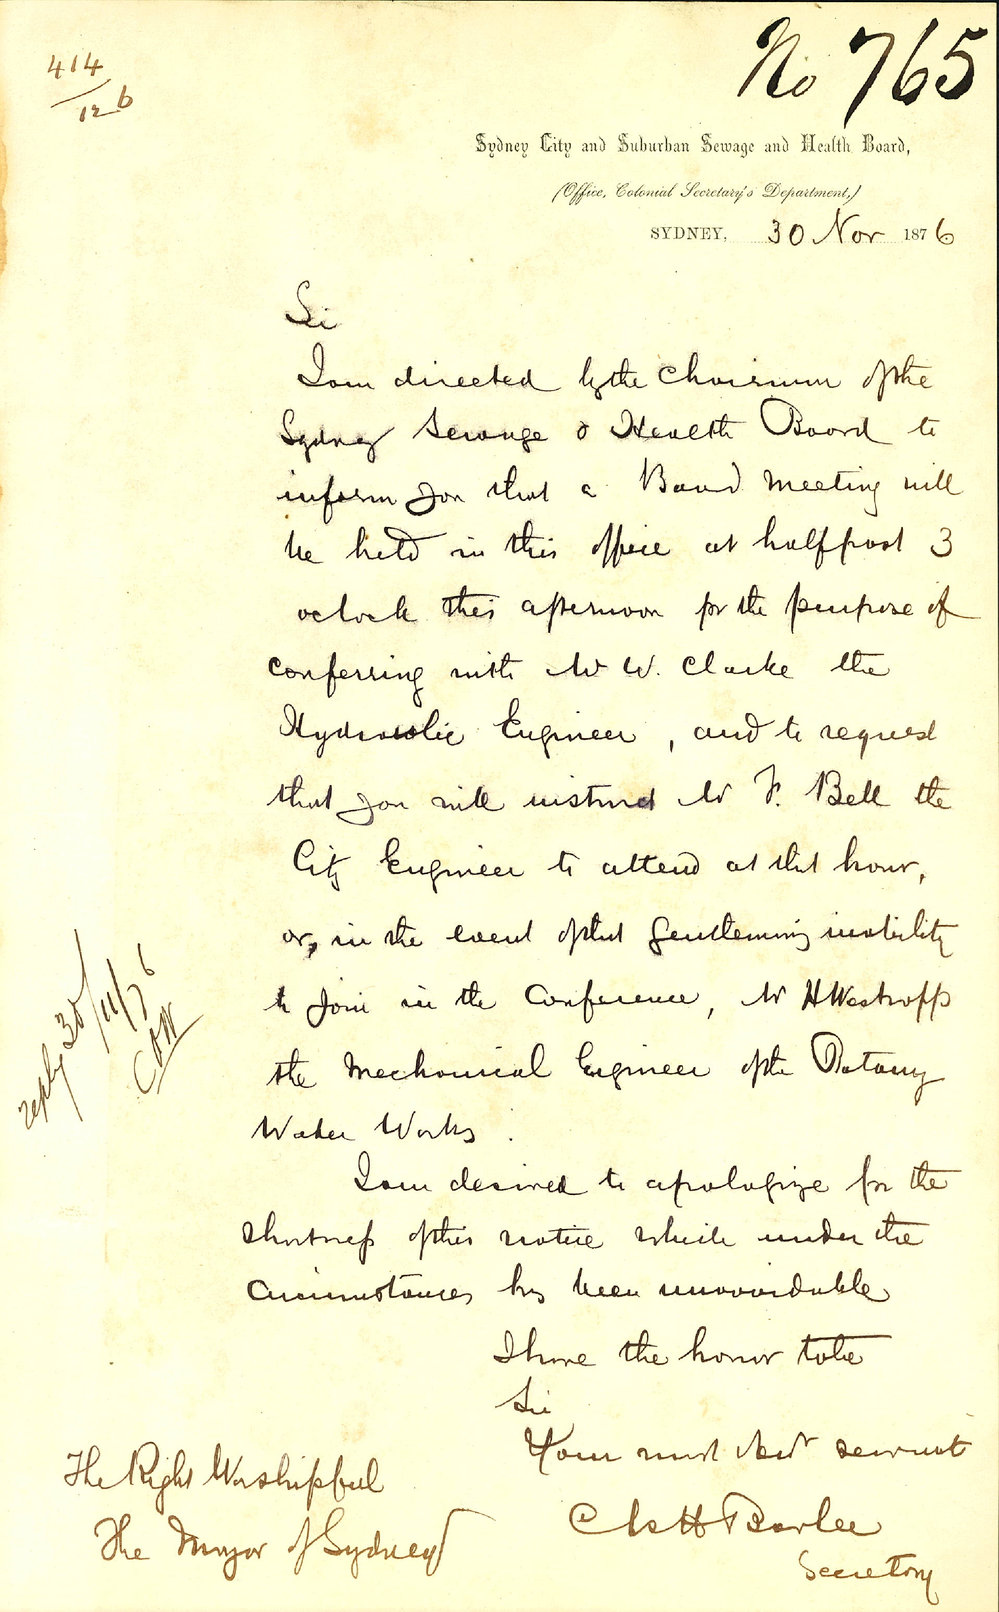 No 765
414
12 6
Sydney City and Suburban Sewage and Health Board,
(Office, Colonial Secretary's Department,)
SYDNEY, 30 Nov 1876
Sir
I am directed by the Chairman of the
Sydney Sewage & Health Board to
inform you that a Board meeting will
be held in this office at half past 3
oclock this afternoon for the purpose of
conferring with Mr W. Clarke the
Hydraulic Engineer, and to request
that you will instruct Mr F. Bell the
City Engineer to attend at that hour,
or, in the event of that gentlemans inability
to join in the Conference, Mr H Westropp
the Mechanical Engineer of the Botany
Water Works.
I am desired to apologize for the
shortness of this notice which under the
circumstances has been unavoidable
I have the honor to be
Sir
Your most obedt servant
Chs H Barlee
Secretary
The Right Worshipful
The Mayor of Sydney
reply 30/11/76